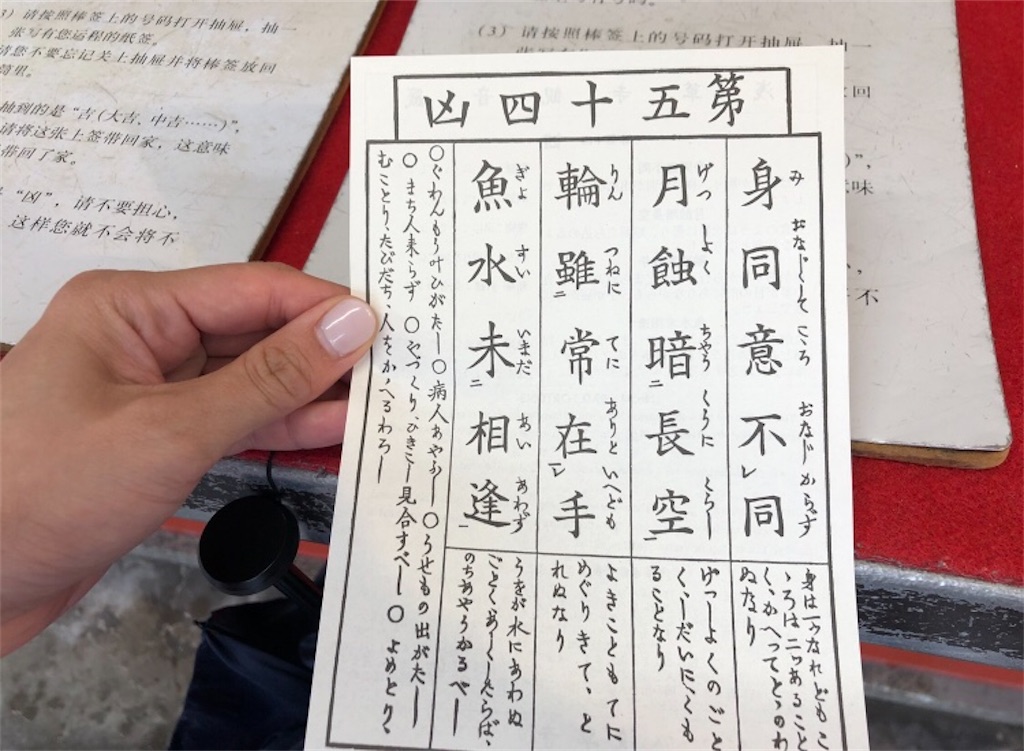 3）请按照棒签上的号码打开抽屉，抽一
张写有您运程的纸签。
请您不要忘记关上抽屉并将棒签放回
筒里。
抽到的是“吉(大吉、中吉……)”，
请将这张上签带回家，这意味
带回了家。
“凶”，请不要担心，
这样您就不会将不
（3）请按照棒签上的号码打开抽屉，抽一
张写有
回
”，
意味
不
第五十四凶
み おなじくそ こころ おなじ からず
身同意不レ同
身は一つなれどもこ
ゝろは二ツあること
く、かへってとゝのわ
ぬなり
げつ しよく ちやう くうに くらし
月蝕暗二長空一
げっしよくのごと
く、しだいに、くも
ることなり
りん つねに てに ありと いへども
輪雖二常在一レ手
よきこともてに
めぐりきて、と
れぬなり
ぎよ すい いまだ あい あわず
魚水未二相逢一
うをが水にあわぬ
ごとくあしくしたらば、
のちあやうかるべし
〇ぐわんもう叶ひがたし〇病人あやうし〇うせもの出がたし
〇まち人来らず〇やづくり、ひきこし見合すべし〇よめとり、
むことり、たびだち、人をかゝへるわろし